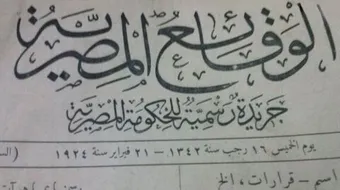 الوقائع المصرية
جريدة رسمية للحكومة المصرية
يوم الخميس ١٦ رجب سنة ١٣٤٢ — ٢١ فبراير سنة ١٩٢٤
اسم – قرارات، الخ